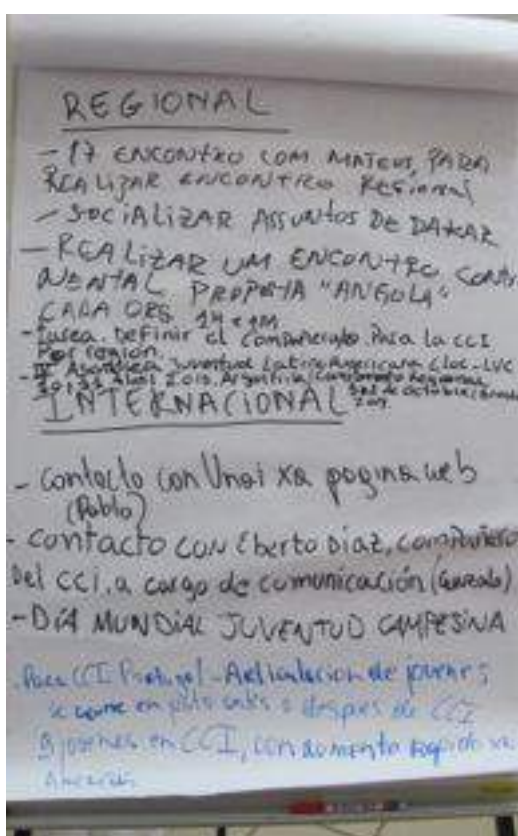 REGIONAL
- 17 ENCONTRO COM MATEUS, PARA
REALIZAR ENCONTRO REGIONAL
- SOCIALIZAR ASSUNTOS DE DAKAR
- REALIZAR UM ENCONTRO CONTI
NENTAL PROPOSTA "ANGOLA"
CADA ORG 1H e 1M
- Tarea. Definir el compañerato Para la CCI
Por región.
- IV Asamblea Juventud LatinoAmericana Cloc-LVC
Abril 2015. Argentina/
INTERNACIONAL
- contacto con Unai xa pagina web
(Pablo)
- contacto con Eberto Diaz, compañero
Del CCI, a cargo de comunicación (Gonzalo)
- DÍA MUNDIAL JUVENTUD CAMPESINA
Para CCI Portugal - Articulacion de jovenes
en antes o despues de CCI
jovenes en CCI, con